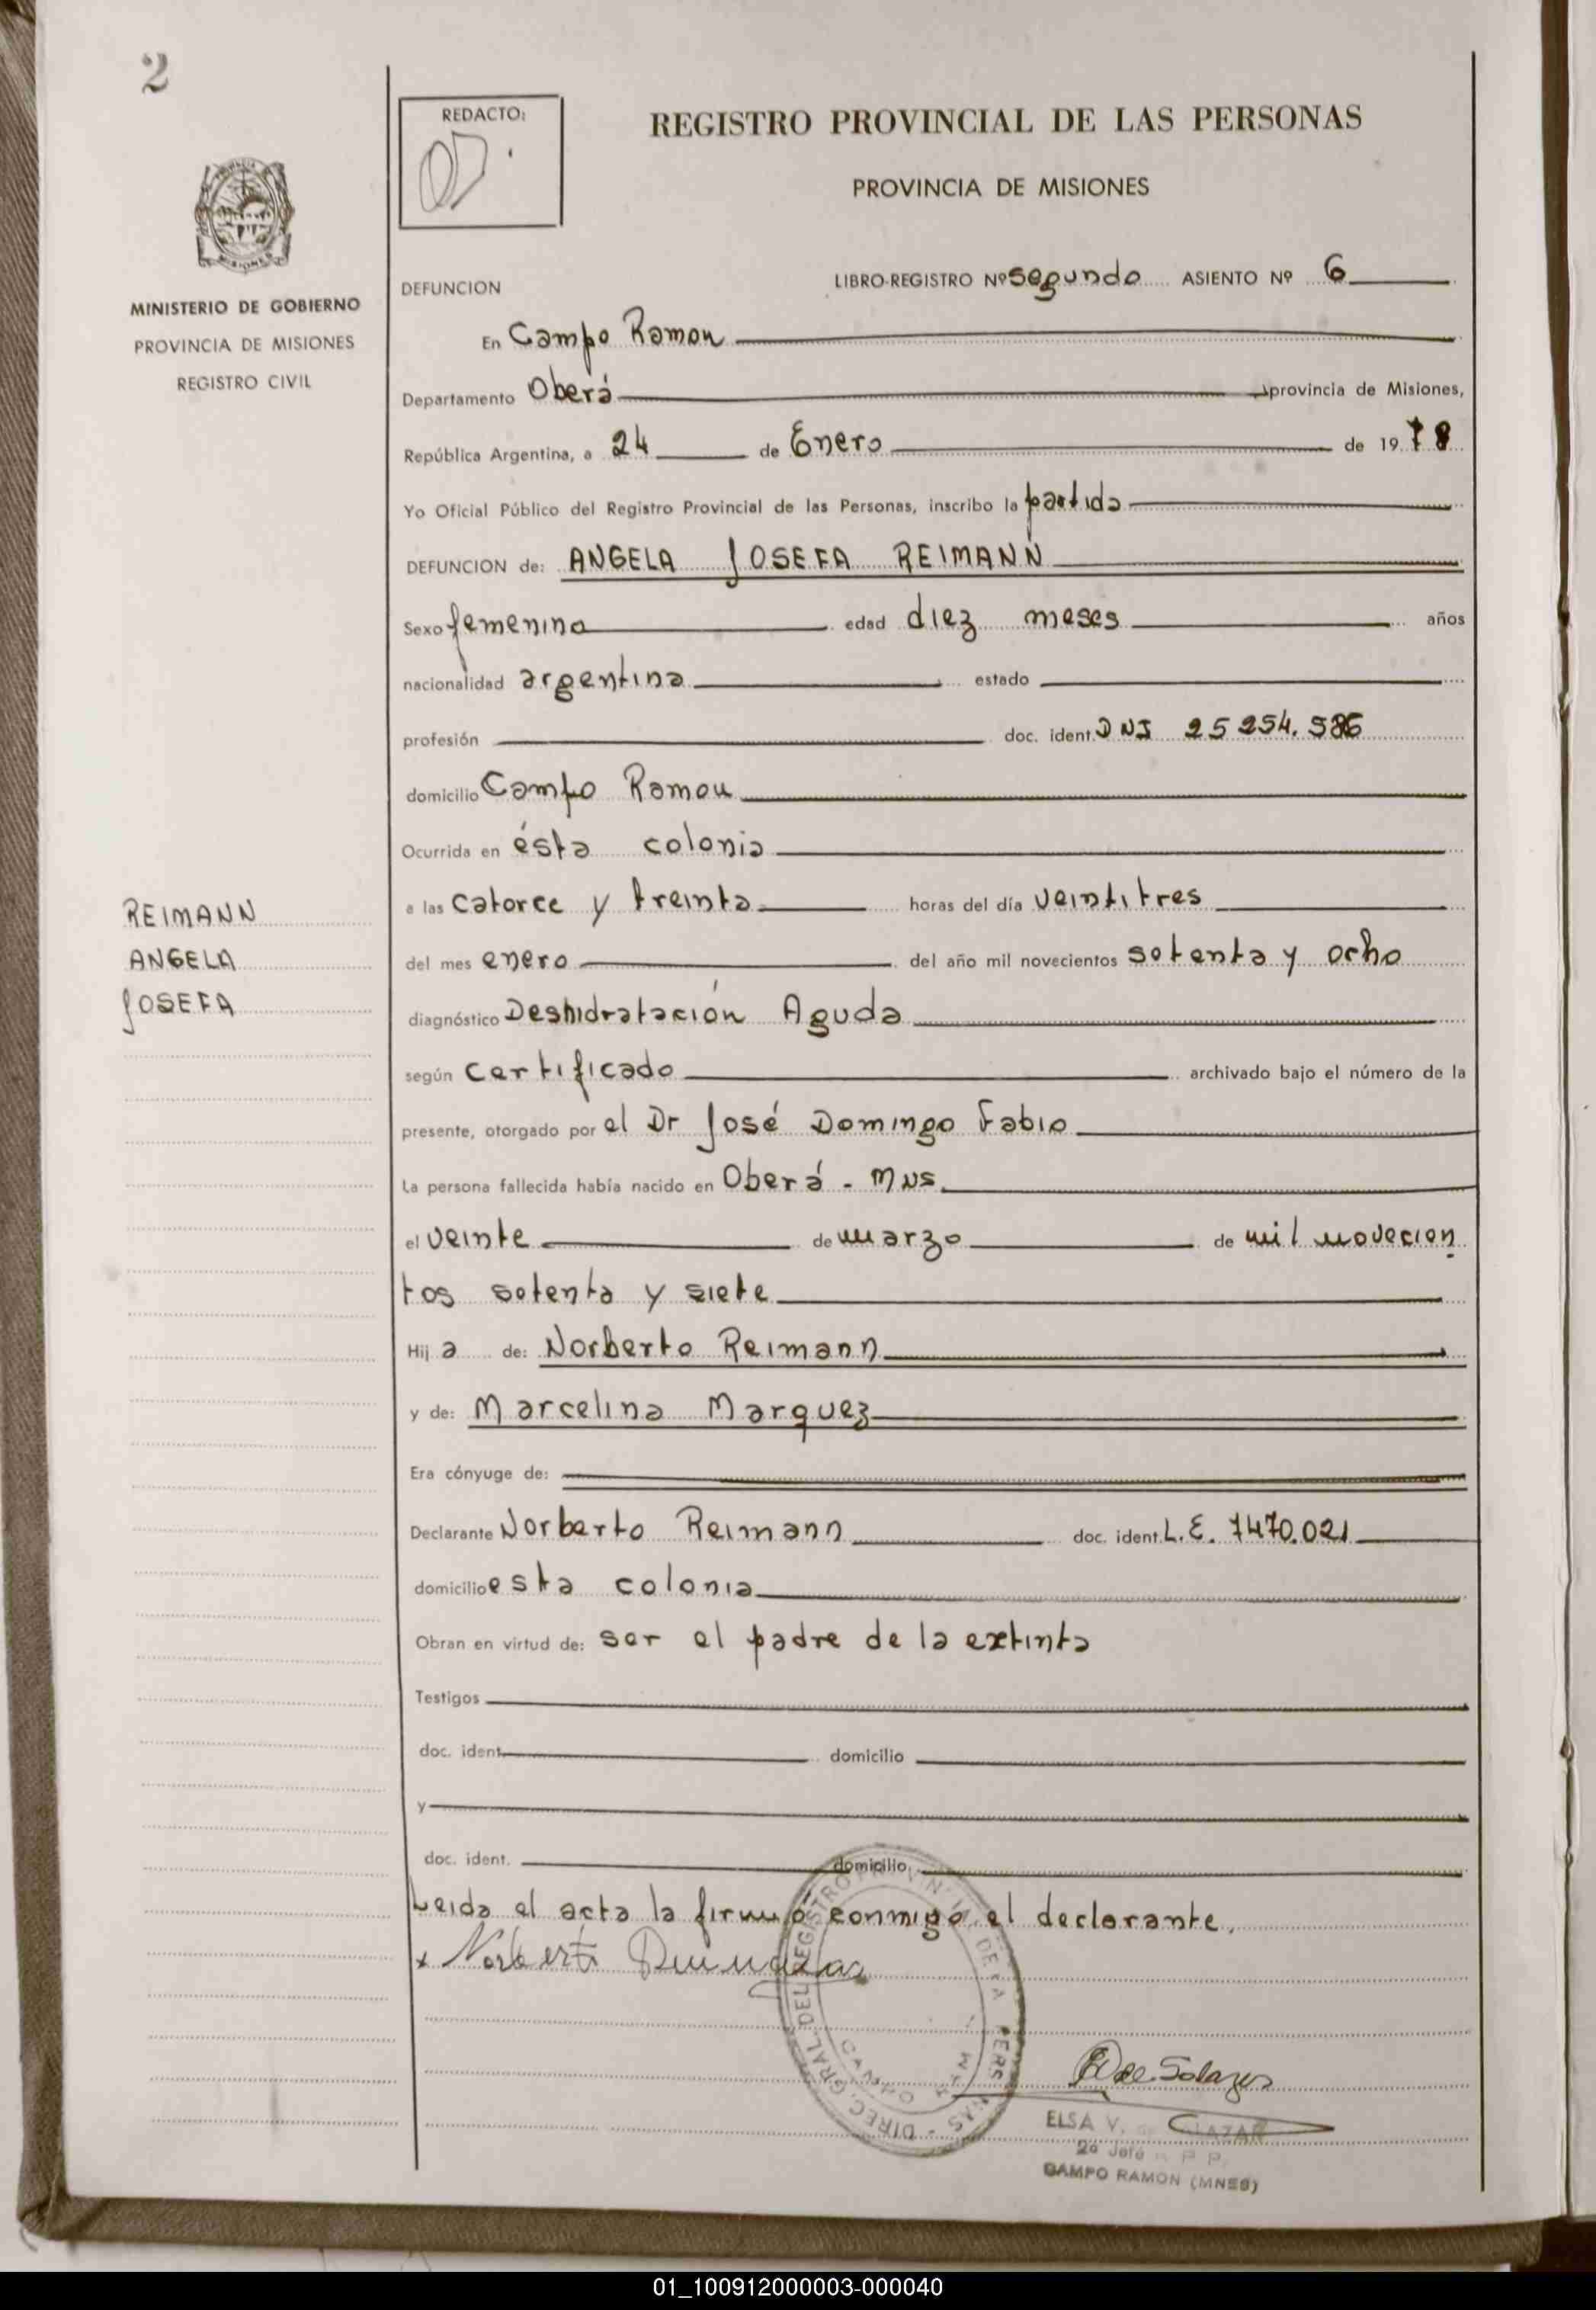 2
REDACTO:
REGISTRO PROVINCIAL DE LAS PERSONAS
PROVINCIA DE MISIONES
MINISTERIO DE GOBIERNO
PROVINCIA DE MISIONES
REGISTRO CIVIL
DEFUNCION LIBRO-REGISTRO Nº segundo ASIENTO Nº 6
En Campo Ramon
Departamento Oberá provincia de Misiones,
República Argentina, a 24 de Enero de 1978
Yo Oficial Público del Registro Provincial de las Personas, inscribo la partida
DEFUNCION de: ANGELA JOSEFA REIMANN
Sexo femenino edad diez meses años
nacionalidad argentina estado
profesión doc. ident. DNI 25 254.586
domicilio Campo Ramon
Ocurrida en ésta colonia
REIMANN
ANGELA
JOSEFA
a las catorce y treinta horas del día veintitres
del mes enero del año mil novecientos setenta y ocho
diagnóstico Deshidratación Aguda
según certificado archivado bajo el número de la
presente, otorgado por el Dr José Domingo Fabio
La persona fallecida había nacido en Oberá - MNS
el veinte de marzo de mil novecien
tos setenta y siete
Hij a de: Norberto Reimann
y de: Marcelina Marquez
Era cónyuge de:
Declarante Norberto Reimann doc. ident. L.E. 7470.021
domicilio esta colonia
Obran en virtud de: ser el padre de la extinta
Testigos
doc. ident. domicilio
y
doc. ident. domicilio
Leida el acta la firmó conmigo el declarante.
x Norberto
DIREC. GRAL. DEL REGISTRO PROVIN. DE LA PERSONAS
ELSA V. SALAZAR
2ª Jefe R P P
CAMPO RAMON (MNES)
01_100912000003-000040